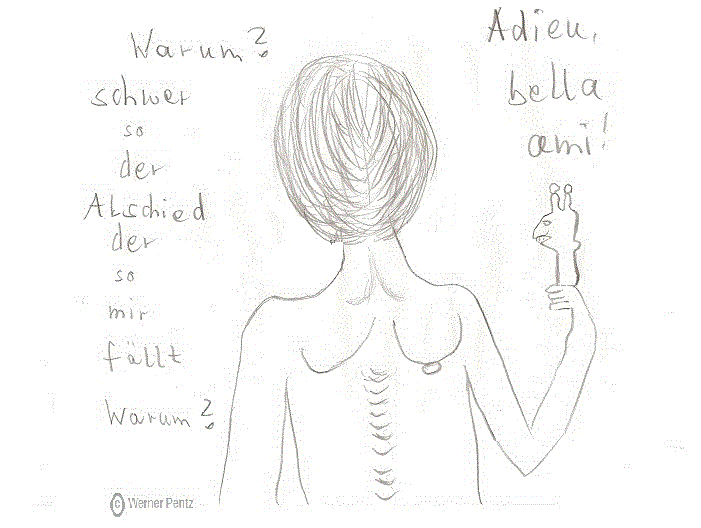 Warum?
schwer
so
der
Abschied
der
so
mir
fällt
Warum?
Adieu,
bella
ami!
© Werner Pentz